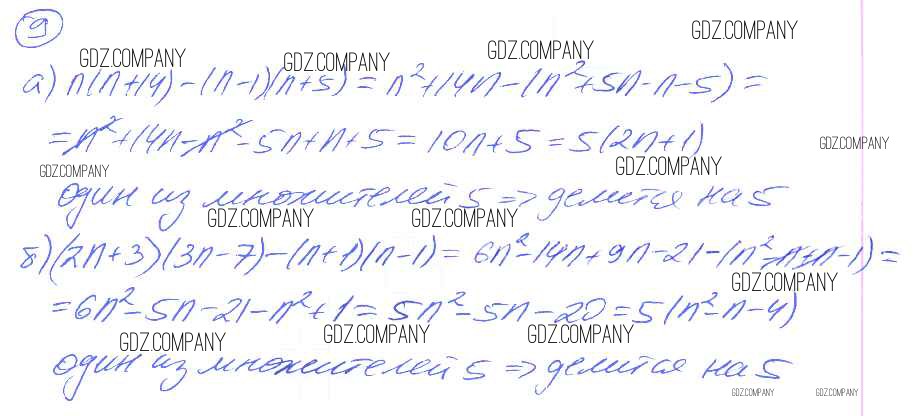 9
GDZ.COMPANY GDZ.COMPANY GDZ.COMPANY GDZ.COMPANY
а) n(n+14)-(n-1)(n+5) = n²+14n-(n²+5n-n-5) =
= n²+14n-n²-5n+n+5 = 10n+5 = 5(2n+1)
GDZ.COMPANY GDZ.COMPANY GDZ.COMPANY
один из множителей 5 => делится на 5
GDZ.COMPANY GDZ.COMPANY
б) (2n+3)(3n-7)-(n+1)(n-1) = 6n²-14n+9n-21-(n²-n+n-1) =
GDZ.COMPANY
= 6n²-5n-21-n²+1 = 5n²-5n-20 = 5(n²-n-4)
GDZ.COMPANY GDZ.COMPANY GDZ.COMPANY
один из множителей 5 => делится на 5
GDZ.COMPANY GDZ.COMPANY